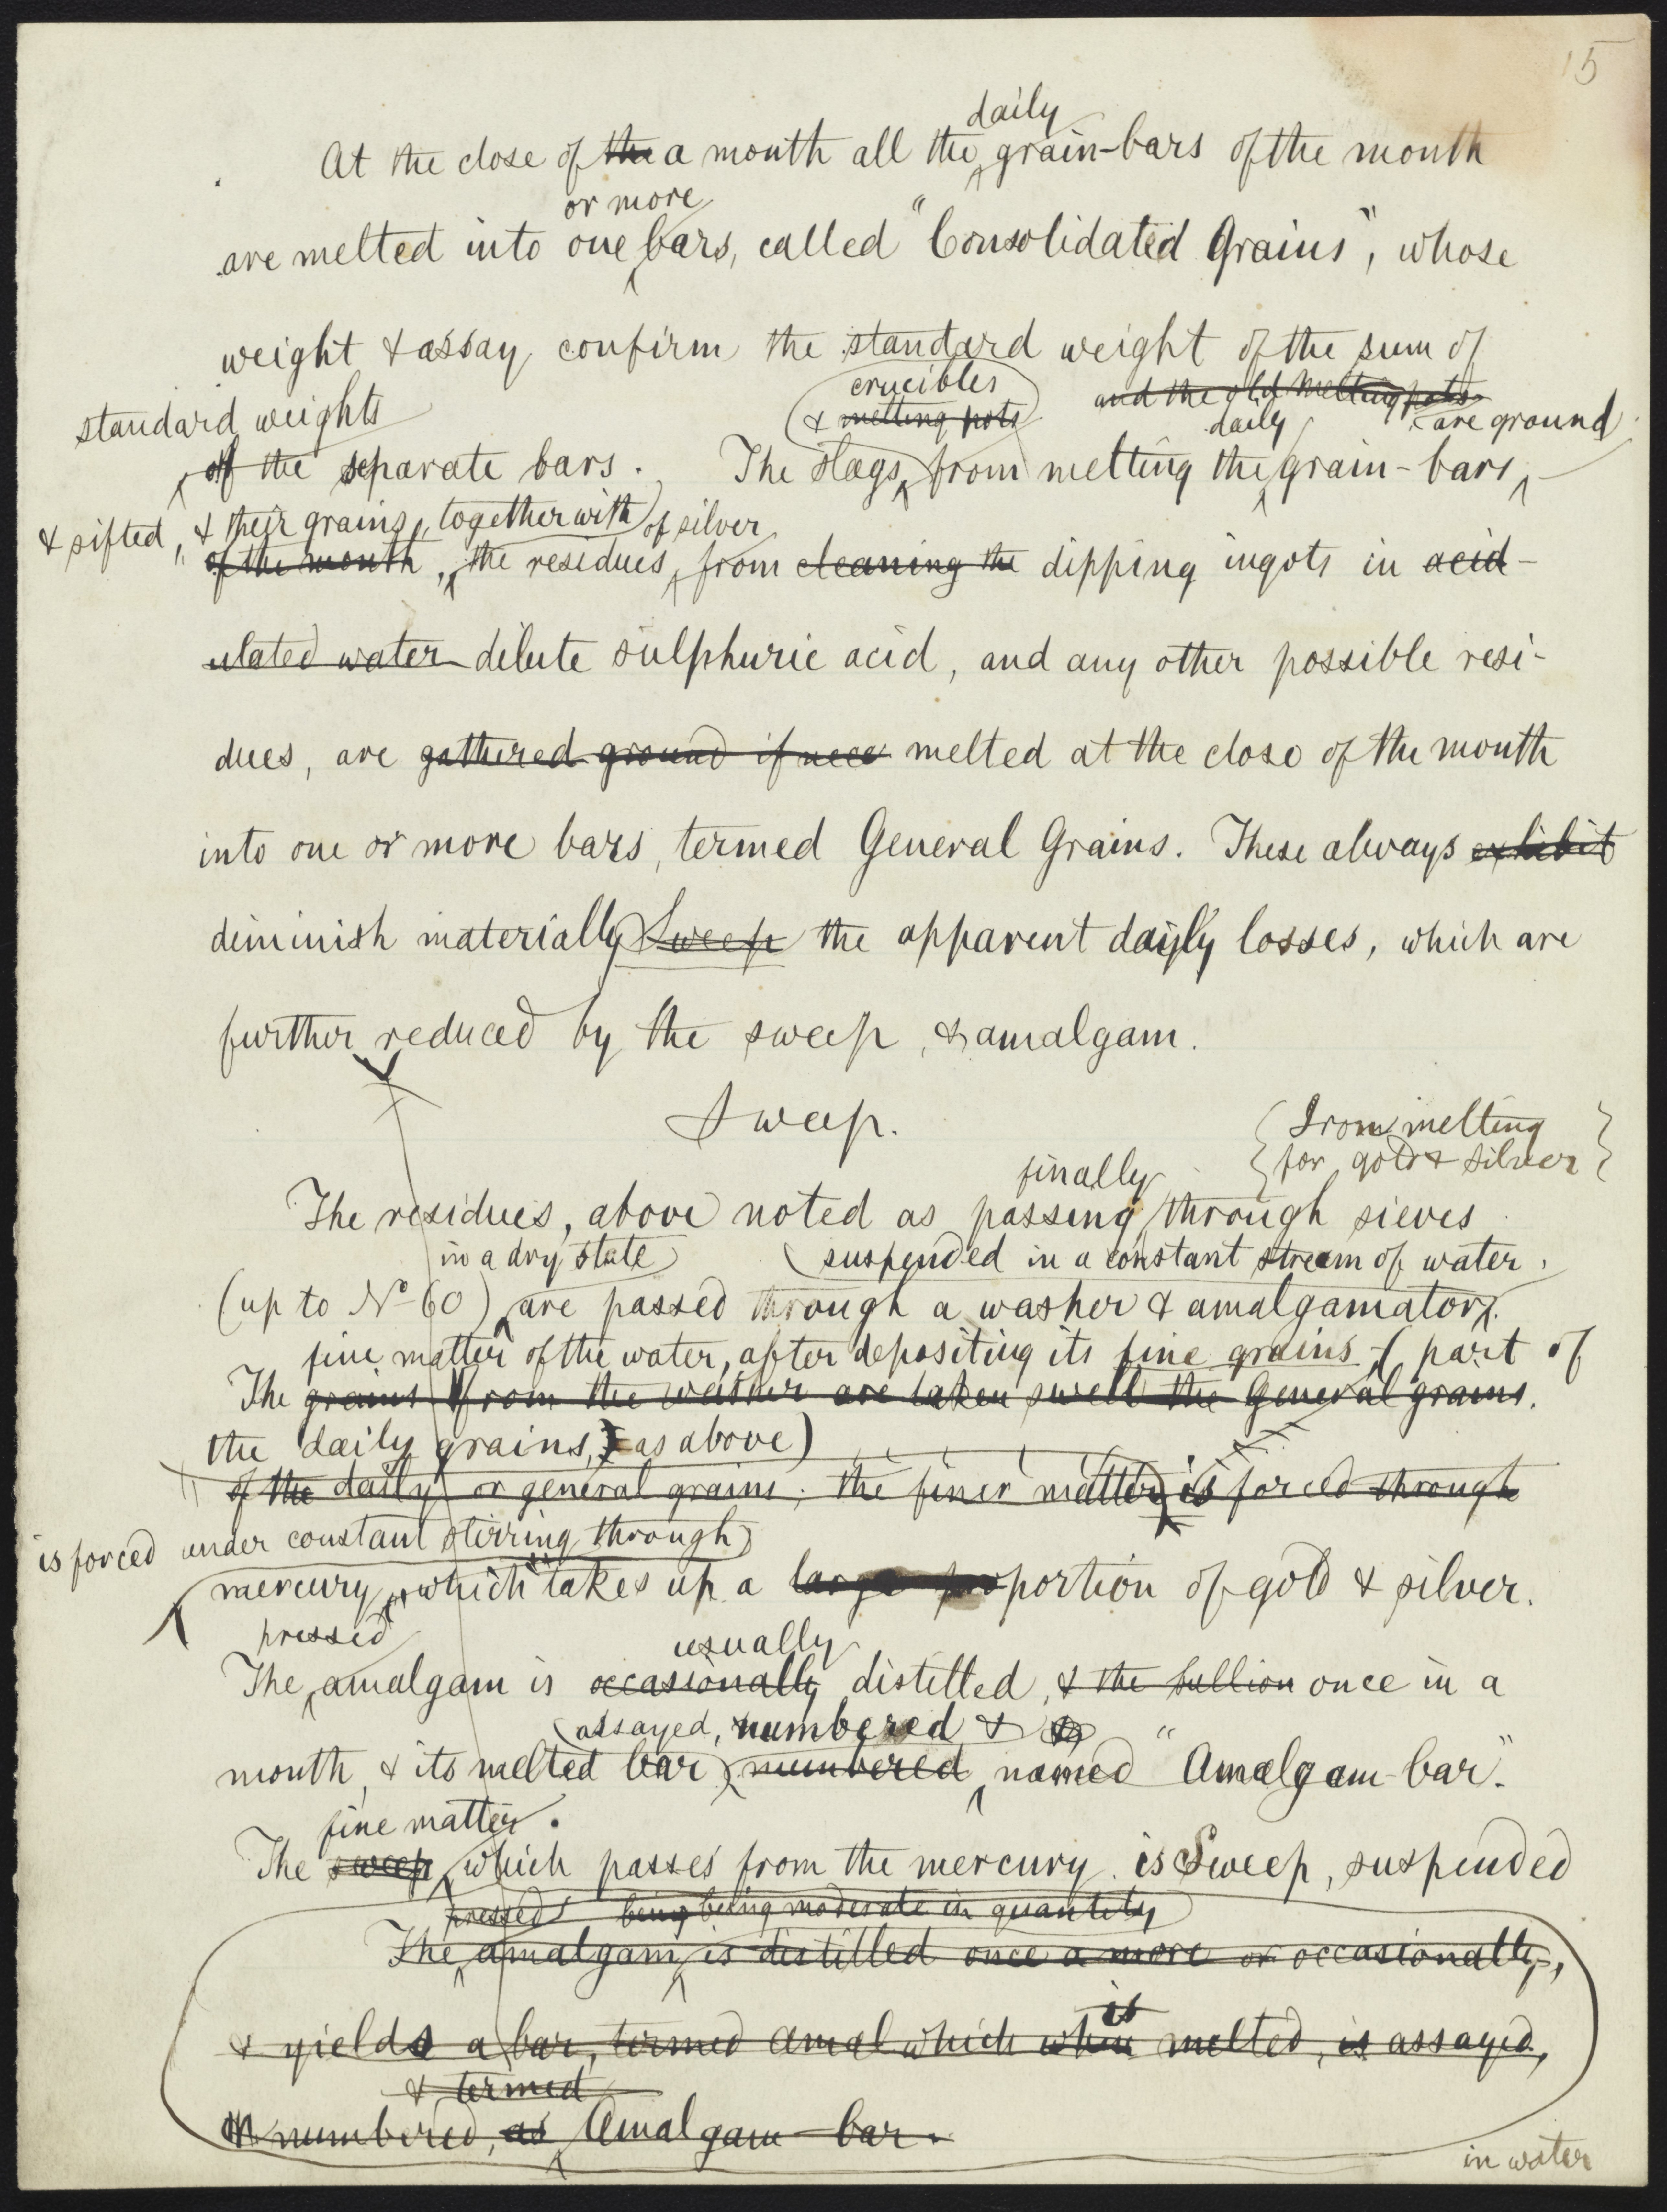 15
daily
At the close of the a month all the grain-bars of the month
or more
are melted into one bars, called "Consolidated Grains", whose
weight & assay confirm the standard weight of the sum of
standard weights
crucibles
& melting pots
and the old melting pots
daily
are ground
of the separate bars. The slags from melting the grain-bars,
& sifted, & their grains, together with of silver
of the month, the residues from cleaning the dipping ingots in acid-
ulated water dilute sulphuric acid, and any other possible resi-
dues, are gathered ground if nece melted at the close of the month
into one or more bars, termed General Grains. These always exhibit
diminish materially Sweep the apparent daily losses, which are
further reduced by the sweep, & amalgam.
Sweep.
Iron melting
for gold & silver
finally
The residues, above noted as passing through sieves
in a dry state suspended in a constant stream of water.
(up to No 60) are passed through a washer & amalgamator.
fine matter of the water, after depositing its fine grains (part of
The grains from the washer are taken swell the General grains.
the daily grains, as above)
of the daily or general grains; the finer matter is forced through
is forced under constant stirring through
mercury, which takes up a large proportion of gold & silver.
pressed
usually
The amalgam is occasionally distilled, & the bullion once in a
assayed, numbered &
month, & its melted bar numbered, named "Amalgam-bar".
fine matter
The sweep, which passes from the mercury is Sweep, suspended
pressed being being moderate in quantity
The amalgam, is distilled once a more or occasionally,
is
& yields a bar, termed Amal which when melted, is assayed,
& termed
numbered, as Amalgam-bar.
in water